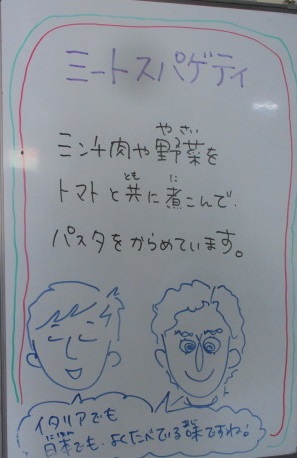 ミートスパゲティ
ミンチ肉や野菜を
トマトと共に煮こんで、
パスタをからめています。
イタリアでも
日本でも、よくたべている味ですね!